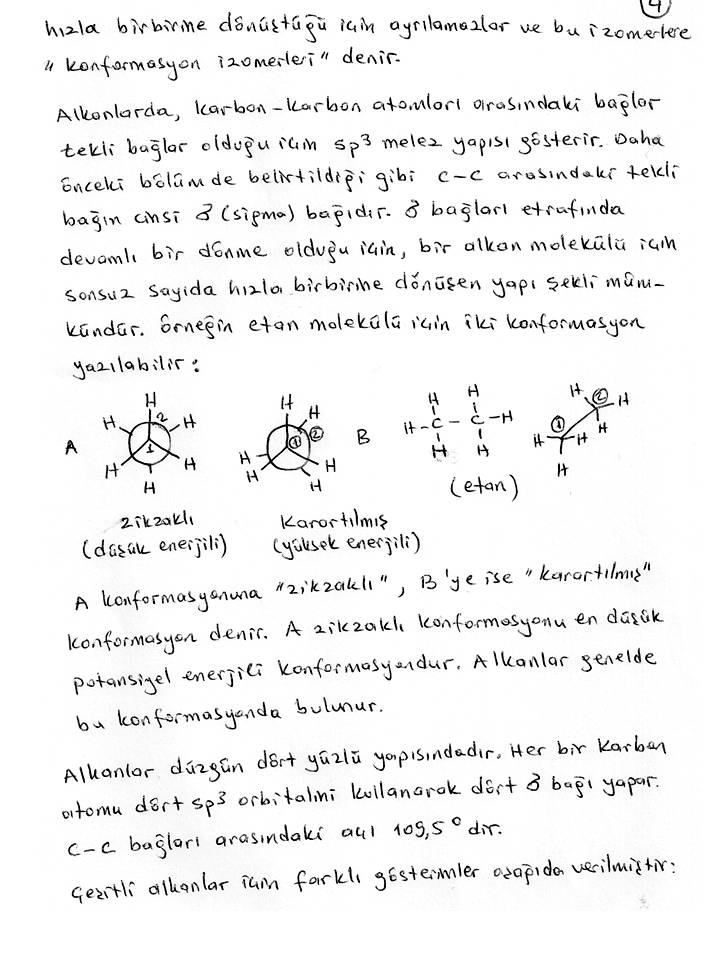 4
hızla birbirine dönüştüğü için ayrılamazlar ve bu izomerlere
"konformasyon izomerleri" denir.
Alkanlarda, karbon-karbon atomları arasındaki bağlar
tekli bağlar olduğu için sp³ melez yapısı gösterir. Daha
önceki bölümde belirtildiği gibi C-C arasındaki tekli
bağın cinsi δ (sigma) bağıdır. δ bağları etrafında
devamlı bir dönme olduğu için, bir alkan molekülü için
sonsuz sayıda hızla birbirine dönüşen yapı şekli müm-
kündür. Örneğin etan molekülü için iki konformasyon
yazılabilir:
A
H H H H H H 1 2
H H H H H H 1 2
B
H H
H-C-C-H
H H
H H H H H H 1 2
zikzaklı
(düşük enerjili)
Karartılmış
(yüksek enerjili)
(etan)
A konformasyonuna "zikzaklı", B'ye ise "karartılmış"
konformasyon denir. A zikzaklı konformasyonu en düşük
potansiyel enerjili konformasyondur. Alkanlar genelde
bu konformasyonda bulunur.
Alkanlar düzgün dört yüzlü yapısındadır. Her bir karbon
atomu dört sp³ orbitalini kullanarak dört δ bağı yapar.
C-C bağları arasındaki açı 109,5° dir.
Çeşitli alkanlar için farklı gösterimler aşağıda verilmiştir: